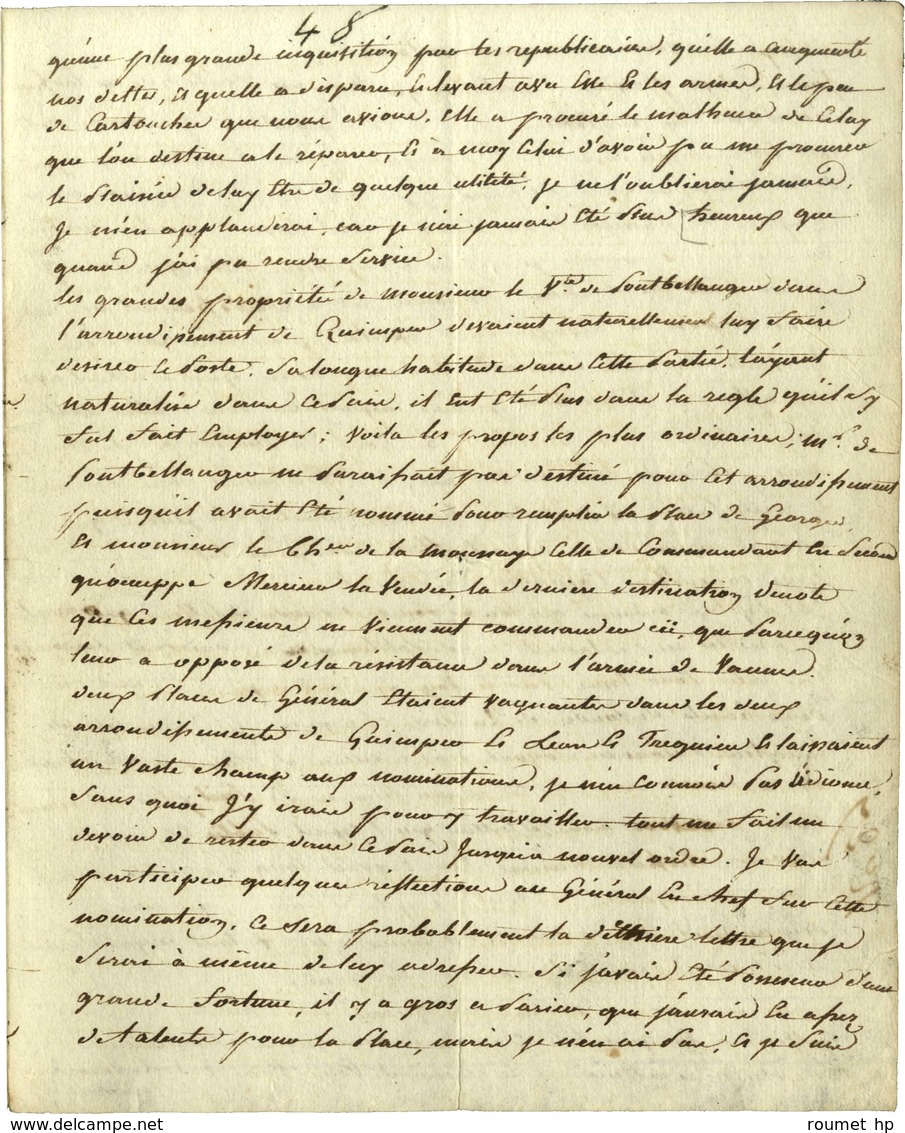 48
qu'une plus grande inquisition par les republicains, qu'elle a augmenté
nos dettes, et quelle a disparu, enlevant avec elle et les armes, et le peu
de Cartouches que nous avions. Elle a procuré le malheur de Celuy
que l'on destine a le réparer, et a moy Celui d'avoir pu me procurer
le plaisir de luy être de quelque utilité, je ne l'oublierai jamais,
Je m'en applaudirai, car je n'ai jamais été plus heureux que
quand j'ai pu rendre service.
les grandes propriétés de Monsieur le Vte de Pontbellanger dans
l'arrondissement de Quimper devaient naturellement luy faire
desirer ce poste. Sa longue habitude dans cette partie, l'ayant
naturalisé dans ce pais, il eut été plus dans la regle qu'il s'y
fut fait Employer; voila les propos les plus ordinaires; mr de
Pontbellanger ne paraissait pas destiné pour cet arrondissement
puisqu'il avait été nommé pour remplir la place de Georges,
et monsieur le Cher de la moussaye celle de Commandant en second
qu'occuppe Mercier la Vendée, la derniere destination denote
que ces messieurs ne viennent commander ici, que parcequ'on
leur a opposé de la résistance dans l'armée de Vannes.
deux places de Général etaient vaquantes dans les deux
arrondissements de Quimper et Leon et Treguier et laissaient
un vaste champ aux nominations, je n'en connois pas l'idiome,
sans quoi j'y irais pour y travailler. tout me fait un
devoir de rester dans ce pais jusqu'a nouvel ordre. Je vais
participer quelques reflections au Général en chef sur cette
nomination, ce sera probablement la derniere lettre que je
serai à même de luy adresser. Si j'avais été possesseur d'une
grande fortune, il y a gros a parier, que j'aurais eu assez
de talents pour la place, mais je n'en ai pas, et je suis
roumet hp